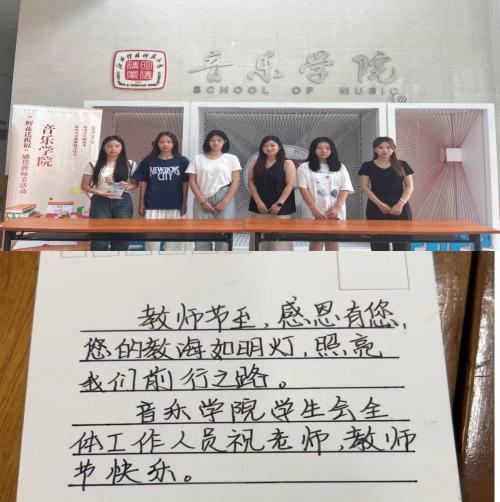 音乐学院
SCHOOL OF MUSIC
音乐学院
“鲜花送祝福”感恩教师节活动
CITY
教师节至，感恩有您，
您的教海如明灯，照亮
我们前行之路。
音乐学院学生会全
体工作人员祝老师，教师
节快乐。